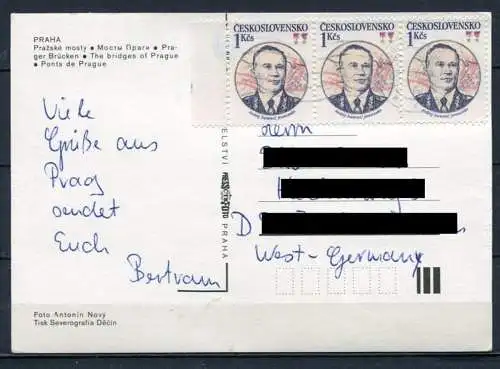 PRAHA
Pražské mosty • Мосты Праги • Pra-
ger Brücken • The bridges of Prague
• Ponts de Prague
ČESKOSLOVENSKO ČESKOSLOVENSKO ČESKOSLOVENSKO
1 Kčs 1 Kčs 1 Kčs
Viele
Grüße aus
Prag
sendet
Euch
Bertram
PRAHA
Herrn
D
West-Germany
Foto Antonín Nový
Tisk Severografia Děčín